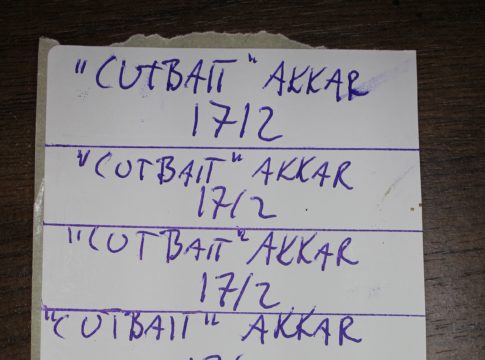 "CUTBAIT" AKKAR
17/2
"CUTBAIT" AKKAR
17/2
"CUTBAIT" AKKAR
17/2
"CUTBAIT" AKKAR